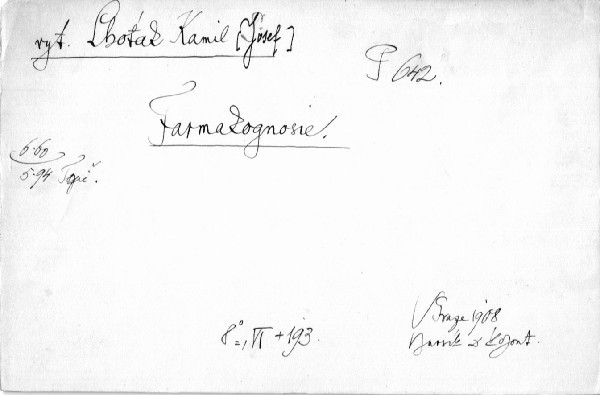 ryt. Lhoták Kamil [Josef]
P 642.
Farmakognosie.
6·60
5·94 Topič.
8°, VI + 193.
V Praze 1908
Bursík & Kohout.